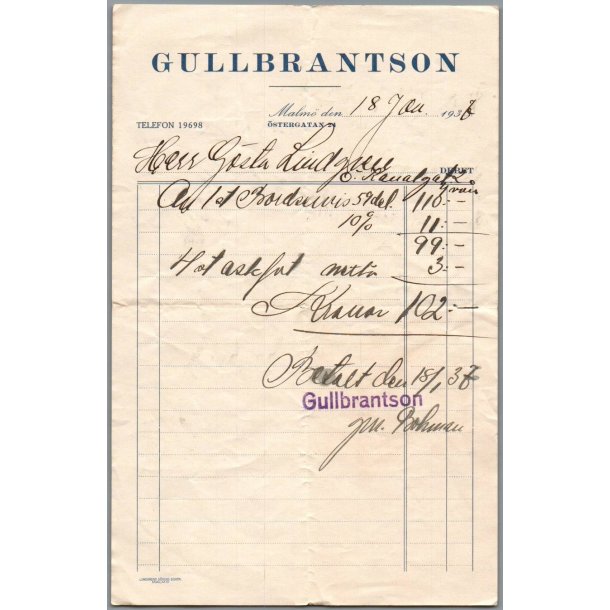 GULLBRANTSON
Malmö den 18 Jan. 1938
TELEFON 19698 ÖSTERGATAN 24
Herr Gösta Lindgren
Ö. Kanalgat.
DEBET
An 1 st Bordservis 59 del. 110:-
10% 11:-
99:-
4 st askfat netto 3:-
Kronor 102:-
Betalt den 18/1 38
Gullbrantson
gm. Bohman